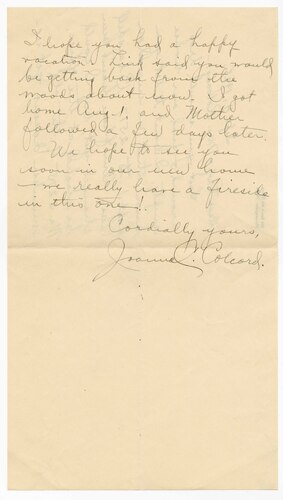 I hope you had a happy
vacation. Link said you would
be getting back from the
woods about now. I got
home Aug 1, and Mother
followed a few days later.
We hope to see you
soon in our new home
— we really have a fireside
in this one!
Cordially yours,
Joanna C. Colcord.